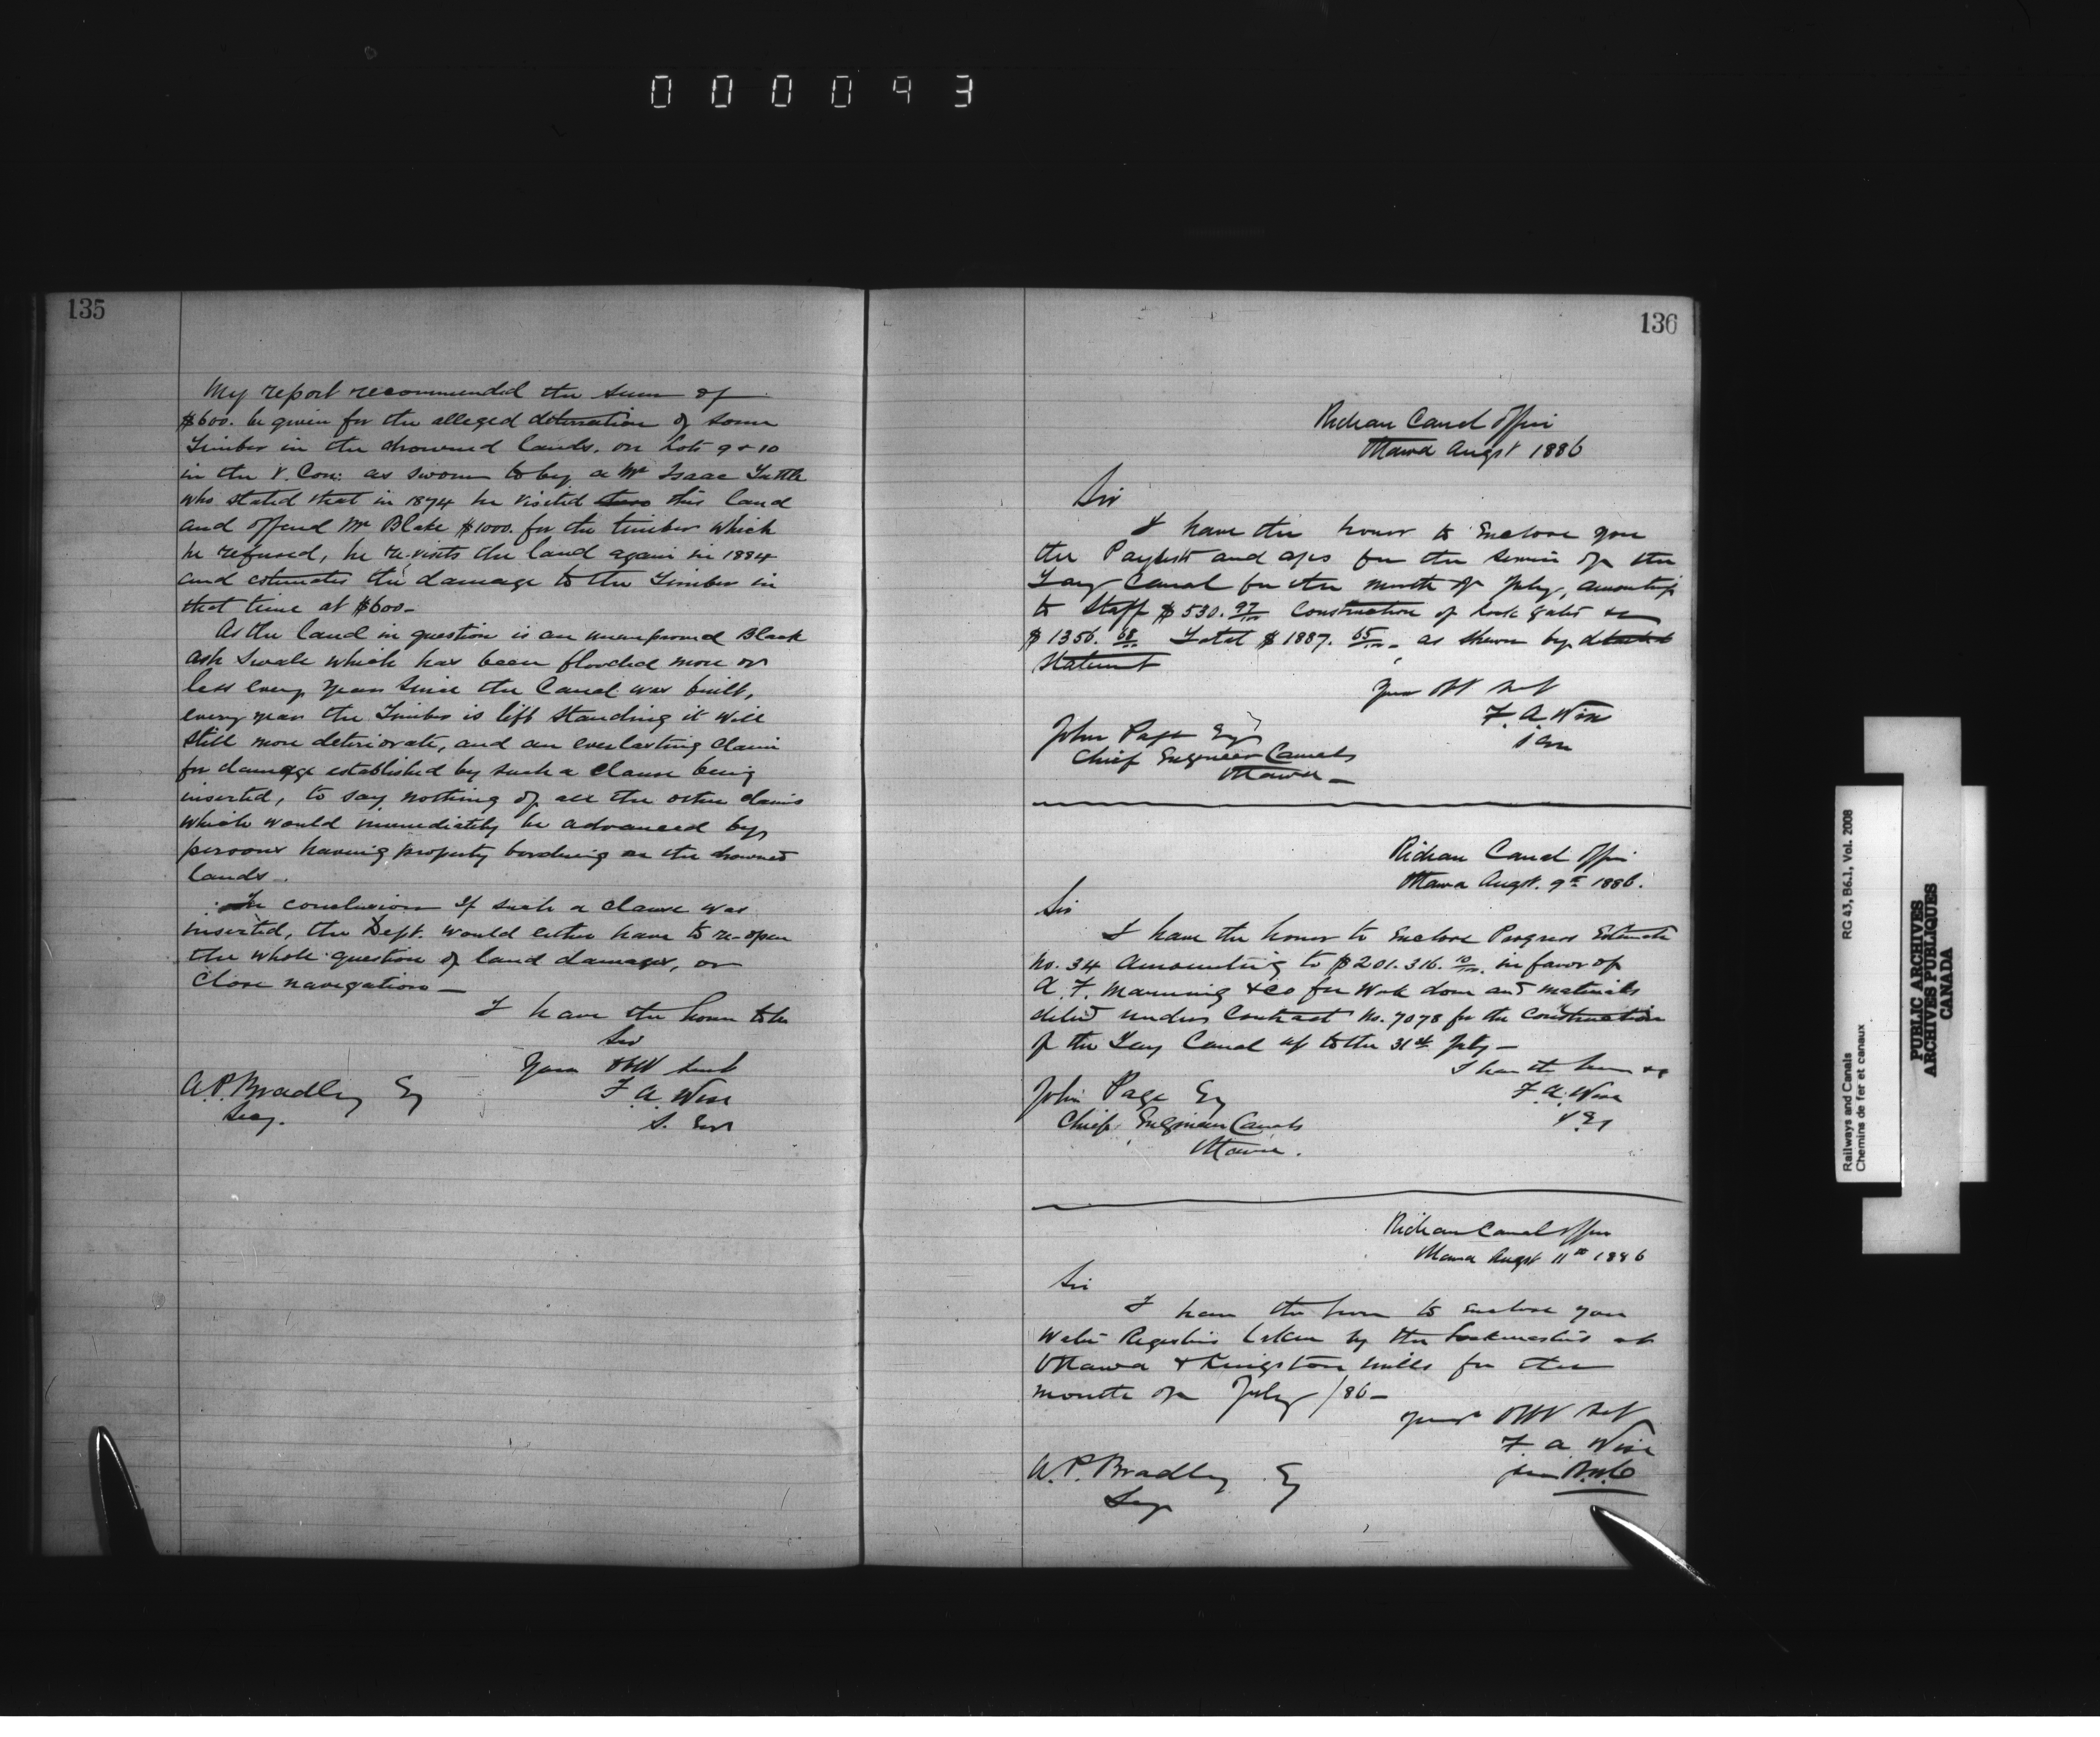 000093
135
My report recommended the sum of
$600. be given for the alleged deterioration of some
Timber in the drowned lands, on Lots 9 & 10
in the V. Con: as sworn to by a Mr Isaac Tuttle
who stated that in 1874 he visited this land
and offered Mr Blake $1000. for the timber which
he refused, he re-visits the land again in 1884
and estimates the damage to the Timber in
that time at $600-
As the land in question is an unimproved Black
ash Swale which has been flooded more or
less every year since the Canal was built,
every year the Timber is left standing it will
still more deteriorate, and an everlasting claim
for damage established by such a clause being
inserted, to say nothing of all the other claims
which would immediately be advanced by
persons having property bordering on the drowned
lands-
In conclusion if such a clause was
inserted, the Dept. would either have to re-open
the whole question of land damages, or
close navigation-
I have the honor to be
Sir
Your Obt Servt
F. A. Wise
S. Engr
A. P. Bradley Esq
Secy.
136
Rideau Canal Office
Ottawa Augst 1886
Sir
I have the honor to Enclose you
the Paylists and a/cs for the service of the
Tay Canal for the month of July, amounting
to Staff $530.97/100 Construction of Lock gates &c
$1356.68/100 Total $1887.65/100- as shewn by detailed
statement
Your Obt Sevt
F. A. Wise
John Page Esq
Chief Engineer Canals
Ottawa-
Rideau Canal Office
Ottawa Augst. 9th 1886.
Sir
I have the honor to Enclose Progress Estimate
No. 34 amounting to $201.316.10/100 in favor of
A. F. Manning & Co for Work done and materials
delivd under Contract No. 7078 for the Construction
of the Tay Canal up to the 31st July-
I have the honor &c
F. A. Wise
John Page Esq
Chief Engineer Canals
Ottawa.
Rideau Canal Office
Ottawa Augst 11th 1886
Sir
I have the honor to enclose you
Water Registers taken by the Lockmasters at
Ottawa & Kingston Mills for the
month of July /86-
Your Obt Sevt
F. A. Wise
A. P. Bradley Esq
Secy
Railways and Canals
Chemins de fer et canaux
RG 43, B6.1, Vol. 2008
PUBLIC ARCHIVES
ARCHIVES PUBLIQUES
CANADA